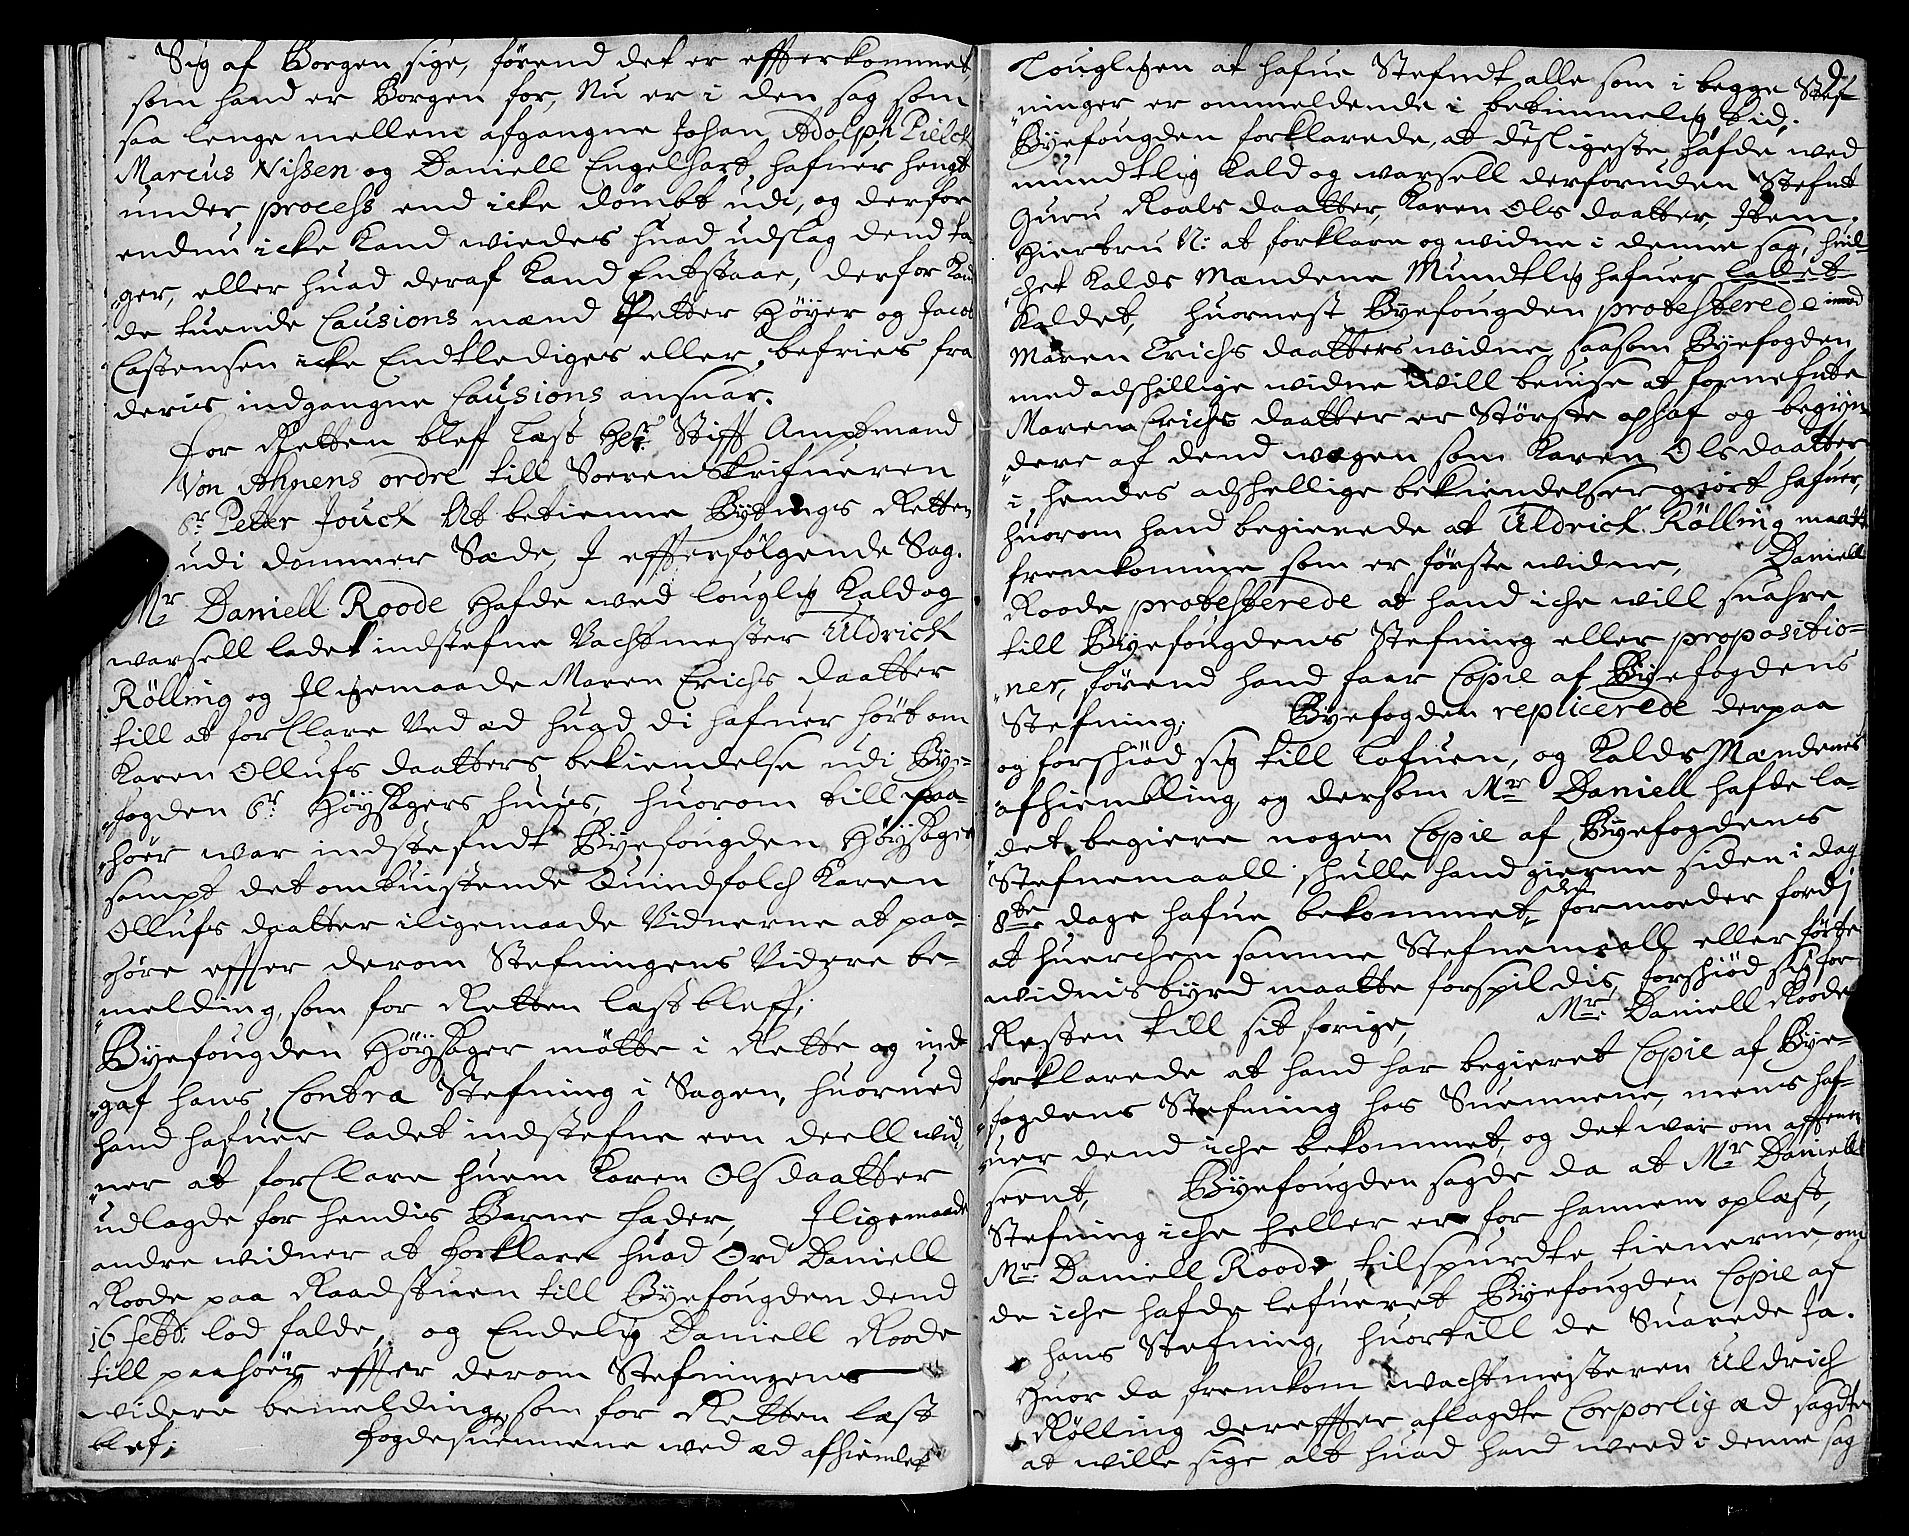 Sig af Borgen sige, førend det er effterkommet
som hand er Borgen for, Nu er i den sag som
saa lenge mellem afgangne Johan Adolph Pielck
Marcus Nissen og Daniell Engelhart, hafuer hengt
under process end icke dømbt udi, og derfor
endnu icke kand wiedes huad udslag dend ta-
ger, eller huad deraf kand Entstaae, derfor kan
de tuende Causions mænd Petter Höyer og Jacob
Castensen icke Endtlediges eller befries fra
deris indgangne Causions ansuar.
For Retten bleff læst Hr. Stifft Amptmand
Von Ahnens ordre till Sorenskrifueren
Sr. Petter Jouch At betienne Bytings Retten
udi dommer Sæde, J effterfølgende Sag.
Mr Daniell Roode Hafde wed louglig kald og
warsell ladet indstefne Vachtmester Uldrick
Rölling og Jligemaade Maren Erichs daatter
till at forClare Ved æd huad di hafuer hørt om
Karen Ollufs daatters bekiendelse udi By-
fogden Sr. Höysagers huus, huorom till paa-
hör war indstefndt Byefougden Höysager
sampt det omtuistende Quindfolch Karen
Ollufs daatter iligemaade Vidnerne at paa-
høre effter derom Stefningens Videre be-
melding, som for Retten læst bleff;
Byefougden Höysager møtte i Rette og ind-
gaf hans Contra Stefning i Sagen, huorued
hand hafuer ladet indstefne een deell wid-
ner at forClare huem Karen Olsdaatter
udlagde for hendis Barne fader, Jligemaade
andre widner at forklare huad Ord Daniell
Roode paa Raadstuen till Byefougden dend
16 febr: lod falde, og Endelig Daniell Roode
till paahör effter derom Stefningens
widere bemelding, som for Retten læst
blef; Fogdesuennene wed æd afhiemlet
9
Louglihen at hafue Stefndt alle som i begge Stef-
ninger er ommeldende i betimmelig tid;
Byefougden forklarede, at desligeste hafde wed
mundtlig kald og warsell derforuden Stefnt
Guru Roals daatter, Karen Ols daatter, Item
Hiertru N: at forklare og widne i denne sag, huil-
chet kalds Mændene Mundtlig hafuer ladet
Kaldet, huornest Byefougden protesterede imod
Maren Erichs daatters widne, saasom Byefogden
med adskillige widne will beuise at fornefnte
Maren Erichs daatter er Største ophaf og begyn-
dere af dend wægen som Karen Olsdaatter
i hendes adskellige bekiendelser giort hafuer,
huorom hand begierede at Uldrick Rölling maatte
fremkomme som er förste widne, Daniell
Roode protesterede at hand iche will suahre
till Byefougdens Stefning eller propositio-
ner, førend hand faar Copie af Byefogdens
Stefning; Byefogden replicerede derpaa
og forskiød sig till Lofuen, og Kalds Mændenes
afhiembling, og dersom Mr Daniell hafde la-
det begiere nogen Copie af Byefogdens
Stefnemaall skulle hand gierne siden i dag
8te dage hafue bekommet, formoeder fordj
at huerchen samme Stefnemaall eller førte
widnisbyrd maatte forspildis, forskiød sig for
Resten till sit forige, Mr. Daniell Roode
forklarede at hand har begieret Copie af Bye-
fogdens Stefning hos Suennene, mens haf-
uer dend iche bekommet, og det war om afftenen
seent, Byefougden sagde da at Mr Daniells
Stefning iche heller er for hannem oplæst,
Mr Daniell Roode tilspurdte tienerne, om
de iche hafde lefueret Byefougden Copie af
hans Stefning, huortill de Suarede Ja.
Huor da fremkom wachtmesteren Uldrich
Rölling dereffter aflagdte Corporlig æd sagdte
at wille sige alt huad hand weed i denne sag